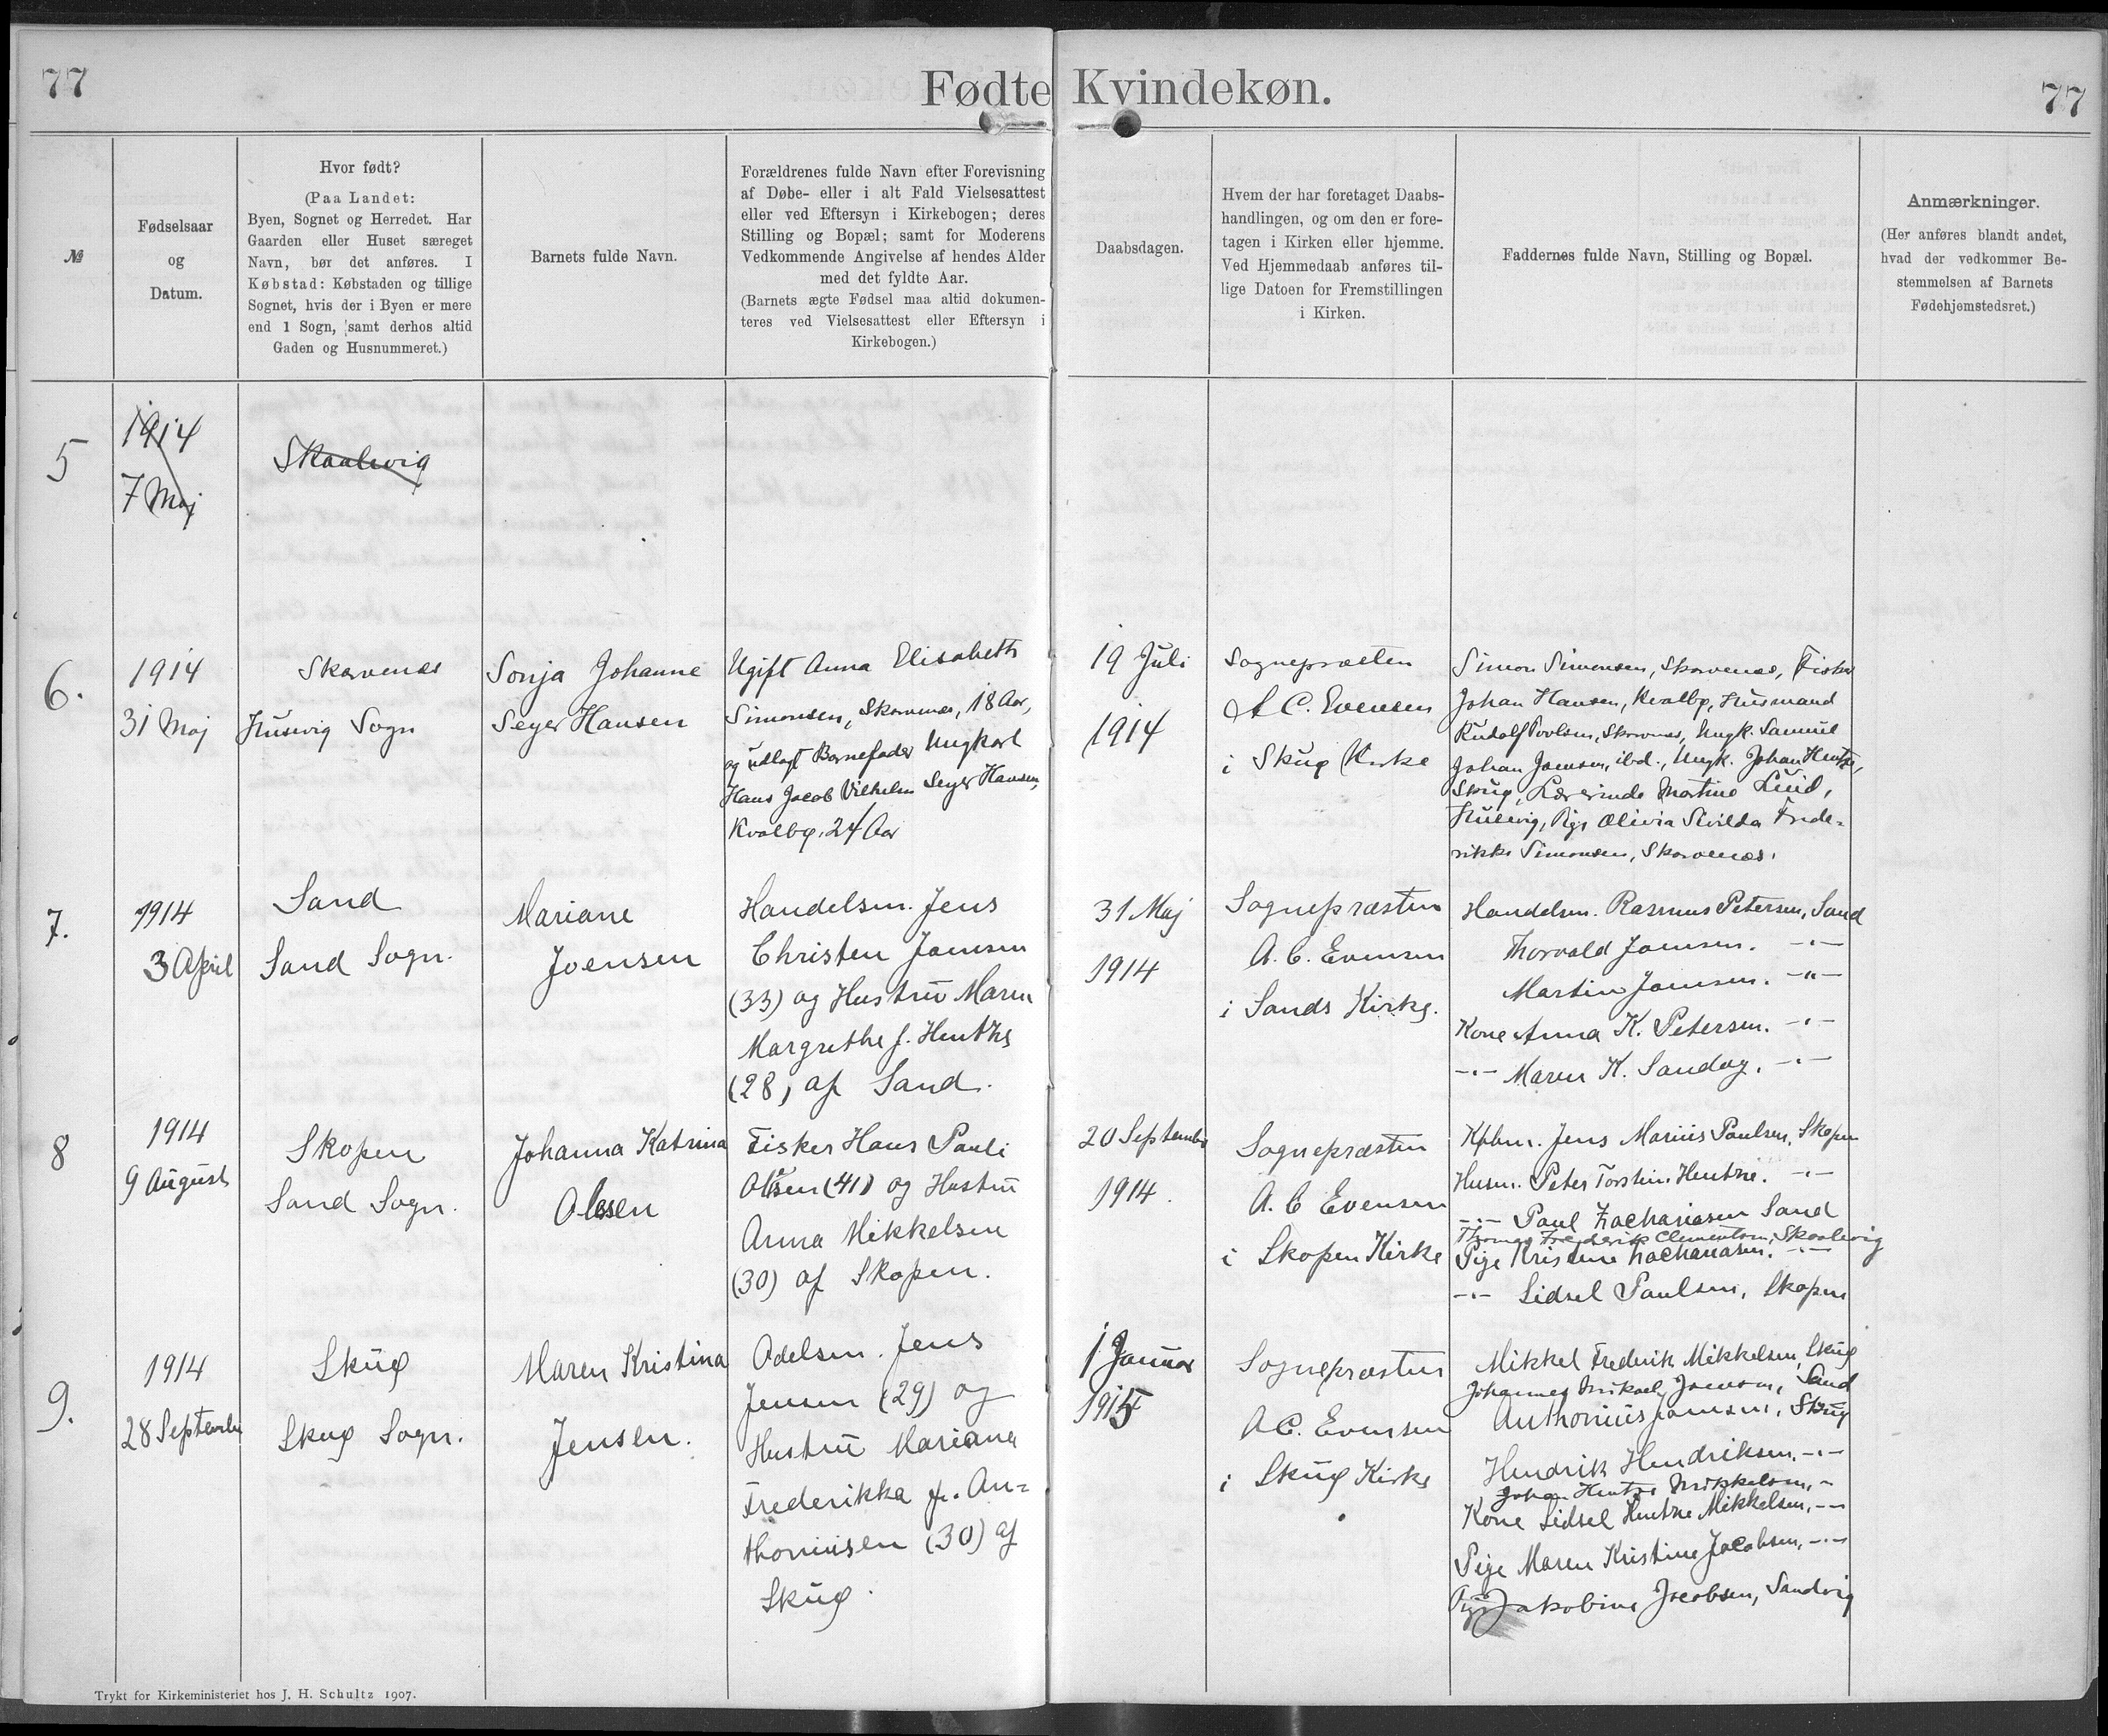 77
Fødte Kvindekøn.
77
№
Fødselsaar
og
Datum.
Hvor født?
(Paa Landet:
Byen, Sognet og Herredet. Har
Gaarden eller Huset særeget
Navn, bør det anføres. I
Købstad: Købstaden og tillige
Sognet, hvis der i Byen er mere
end 1 Sogn, samt derhos altid
Gaden og Husnummeret.)
Barnets fulde Navn.
Forældrenes fulde Navn efter Forevisning
af Døbe- eller i alt Fald Vielsesattest
eller ved Eftersyn i Kirkebogen; deres
Stilling og Bopæl; samt for Moderens
Vedkommende Angivelse af hendes Alder
med det fyldte Aar.
(Barnets ægte Fødsel maa altid dokumen-
teres ved Vielsesattest eller Eftersyn i
Kirkebogen.)
Daabsdagen.
Hvem der har foretaget Daabs-
handlingen, og om den er fore-
tagen i Kirken eller hjemme.
Ved Hjemmedaab anføres til-
lige Datoen for Fremstillingen
i Kirken.
Faddernes fulde Navn, Stilling og Bopæl.
Anmærkninger.
(Her anføres blandt andet,
hvad der vedkommer Be-
stemmelsen af Barnets
Fødehjemstedsret.)
5
1914
7 Maj
Skaalevig
6.
1914
31 Maj
Skarvenes
Husevig Sogn
Sonja Johanne
Seyer Hansen
Ugift Anna Elisabeth
Simonsen, Skarvenes, 18 Aar,
og udlagt Barnefader Ungkarl
Hans Jacob Vilhelm Seyer Hansen,
Kvalbø, 24 Aar
19 Juli
1914
Sognepræsten
A. C. Evensen
i Skuø Kirke
Simon Simonsen, Skarvenes, Fisker
Johan Hansen, Kvalbø, Husmand
Rudolf Povlsen, Skarvenes, Ungk. Samuel
Johan Joensen, ibd., Ungk. Johan Hentze,
Skuø, Lærerinde Martine Lüid,
Husevig, Pige Olivia Sivilda Frede-
rikke Simonsen, Skarvenes.
7.
1914
3 April
Sand
Sand Sogn.
Mariane
Joensen
Handelsm. Jens
Christen Joensen
(33) og Hustru Maren
Margrethe f. Hentze
(28) af Sand.
31 Maj
1914
Sognepræsten
A. C. Evensen
i Sands Kirke.
Handelsm. Rasmus Petersen, Sand
Thorvald Joensen. -"-
Martin Joensen. -"-
Kone Anna K. Petersen. -"-
-"- Maren K. Sandøy. -"-
8
1914
9 August
Skopen
Sand Sogn.
Johanna Katrina
Olsen
Fisker Hans Pauli
Olsen (41) og Hustru
Anna Mikkelsen
(30) af Skopen.
20 September
1914.
Sognepræsten
A. C Evensen
i Skopen Kirke
Købm. Jens Marius Paulsen, Skopen
Husm. Peter Torstein Hentze. -"-
-"- Paul Zachariasen Sand
Thomas Frederik Clementsen, Skaalevig
Pige Kristine Zachariasen. -"-
-"- Sidsel Paulsen, Skopen
9.
1914
28 September
Skuø
Skuø Sogn.
Maren Kristina
Jensen.
Odelsm. Jens
Jensen (29) og
Hustru Mariane
Frederikka f. An-
thoniusen (30) af
Skuø.
1 Januar
1915
Sognepræsten
A C. Evensen
i Skuø Kirke
Mikkel Frederik Mikkelsen, Skuø
Johannes Mikael Joensen, Sand
Anthonius Joensen, Skuø
Hendrik Hendriksen. -"-
Johan Hentze Mikkelsen, -"-
Kone Sidsel Hentze Mikkelsen, -"-
Pige Maren Kristine Jacobsen, -"-
Pige Jakobine Jacobsen, Sandvig
Trykt for Kirkeministeriet hos J. H. Schultz 1907.